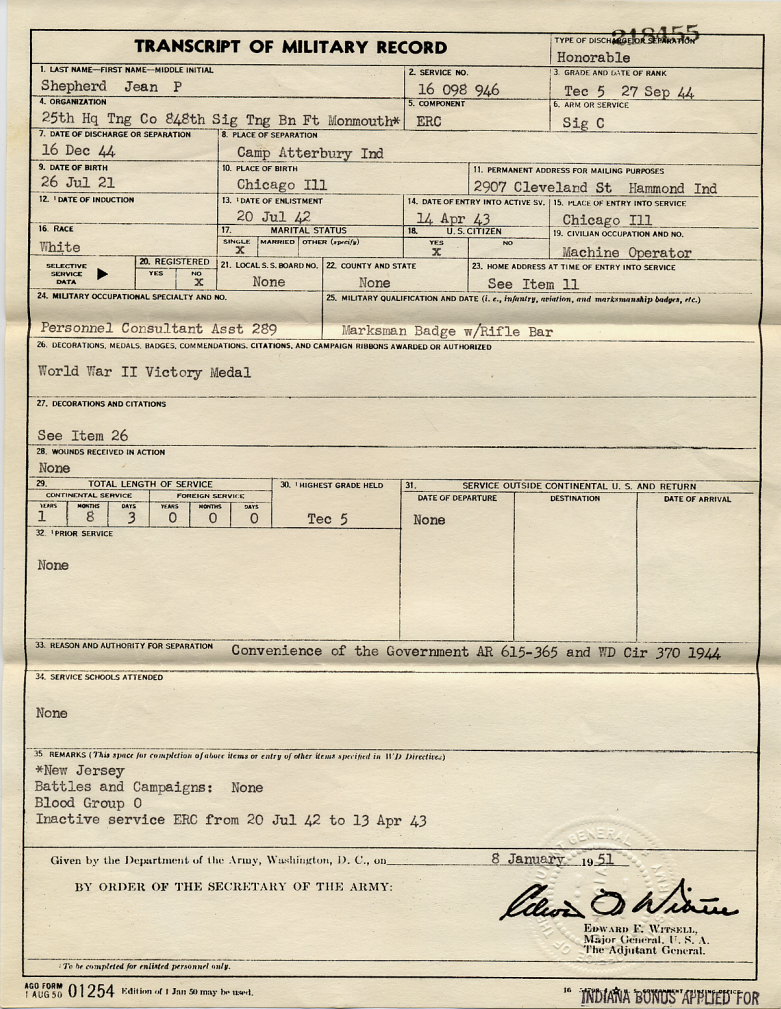 218455
TRANSCRIPT OF MILITARY RECORD
TYPE OF DISCHARGE OR SEPARATION
Honorable
1. LAST NAME—FIRST NAME—MIDDLE INITIAL
Shepherd Jean P
2. SERVICE NO.
16 098 946
3. GRADE AND DATE OF RANK
Tec 5 27 Sep 44
4. ORGANIZATION
25th Hq Tng Co 848th Sig Tng Bn Ft Monmouth*
5. COMPONENT
ERC
6. ARM OR SERVICE
Sig C
7. DATE OF DISCHARGE OR SEPARATION
16 Dec 44
8. PLACE OF SEPARATION
Camp Atterbury Ind
9. DATE OF BIRTH
26 Jul 21
10. PLACE OF BIRTH
Chicago Ill
11. PERMANENT ADDRESS FOR MAILING PURPOSES
2907 Cleveland St Hammond Ind
12. ¹DATE OF INDUCTION
13. ¹DATE OF ENLISTMENT
20 Jul 42
14. DATE OF ENTRY INTO ACTIVE SV.
14 Apr 43
15. PLACE OF ENTRY INTO SERVICE
Chicago Ill
16. RACE
White
17. MARITAL STATUS
SINGLE MARRIED OTHER (specify)
X
18. U.S. CITIZEN
YES NO
X
19. CIVILIAN OCCUPATION AND NO.
Machine Operator
SELECTIVE
SERVICE
DATA
20. REGISTERED
YES NO
X
21. LOCAL S. S. BOARD NO.
None
22. COUNTY AND STATE
None
23. HOME ADDRESS AT TIME OF ENTRY INTO SERVICE
See Item 11
24. MILITARY OCCUPATIONAL SPECIALTY AND NO.
Personnel Consultant Asst 289
25. MILITARY QUALIFICATION AND DATE (i. e., infantry, aviation, and marksmanship badges, etc.)
Marksman Badge w/Rifle Bar
26. DECORATIONS, MEDALS, BADGES, COMMENDATIONS, CITATIONS, AND CAMPAIGN RIBBONS AWARDED OR AUTHORIZED
World War II Victory Medal
27. DECORATIONS AND CITATIONS
See Item 26
28. WOUNDS RECEIVED IN ACTION
None
29. TOTAL LENGTH OF SERVICE
CONTINENTAL SERVICE FOREIGN SERVICE
YEARS MONTHS DAYS YEARS MONTHS DAYS
1 8 3 0 0 0
30. ¹HIGHEST GRADE HELD
Tec 5
31. SERVICE OUTSIDE CONTINENTAL U. S. AND RETURN
DATE OF DEPARTURE DESTINATION DATE OF ARRIVAL
None
32. ¹PRIOR SERVICE
None
33. REASON AND AUTHORITY FOR SEPARATION Convenience of the Government AR 615-365 and WD Cir 370 1944
34. SERVICE SCHOOLS ATTENDED
None
35 REMARKS (This space for completion of above items or entry of other items specified in WD Directives)
*New Jersey
Battles and Campaigns: None
Blood Group O
Inactive service ERC from 20 Jul 42 to 13 Apr 43
Given by the Department of the Army, Washington, D. C., on 8 January 1951
BY ORDER OF THE SECRETARY OF THE ARMY:
EDWARD F. WITSELL,
Major General, U. S. A.
The Adjutant General.
¹To be completed for enlisted personnel only.
AGO FORM
1 AUG 50 01254 Edition of 1 Jan 50 may be used.
16 U. S. GOVERNMENT PRINTING OFFICE
INDIANA BONUS APPLIED FOR